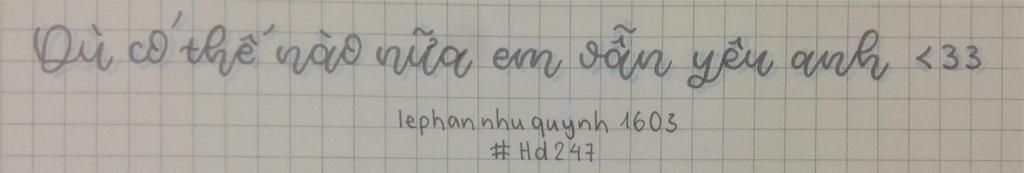 Dù có thế nào nữa em vẫn yêu anh <33
lephannhuquynh 1603
#Hd247